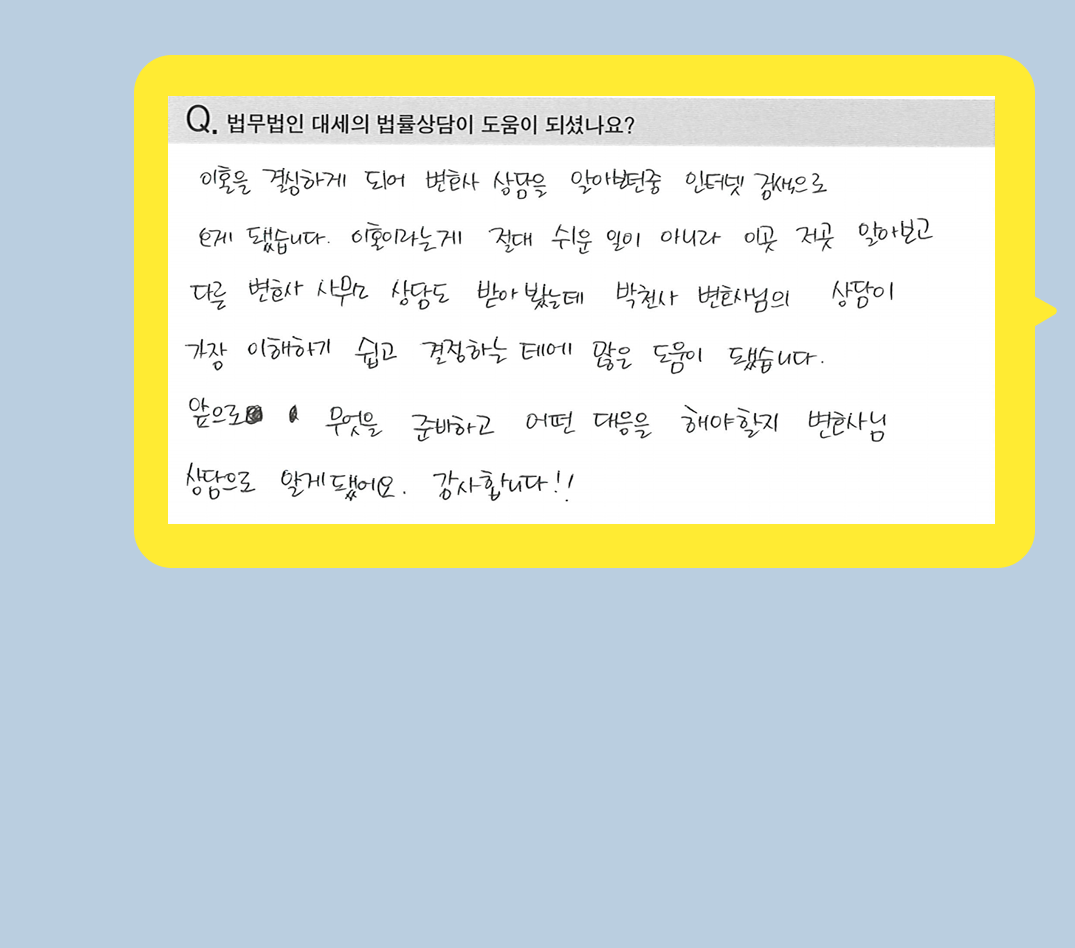 Q. 법무법인 대세의 법률상담이 도움이 되셨나요?
이혼을 결심하게 되어 변호사 상담을 알아보던중 인터넷 검색으로
오게 됐습니다. 이혼이라는게 절대 쉬운 일이 아니라 이곳 저곳 알아보고
다른 변호사 사무소 상담도 받아봤는데 변호사님의 상담이
가장 이해하기 쉽고 결정하는 데에 많은 도움이 됐습니다.
앞으로 무엇을 준비하고 어떤 대응을 해야할지 변호사님
상담으로 알게됐어요. 감사합니다!!